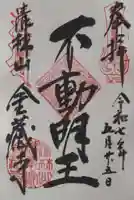 奉拝
令和七年
五月十五日
不動明王
清林山
金藏寺